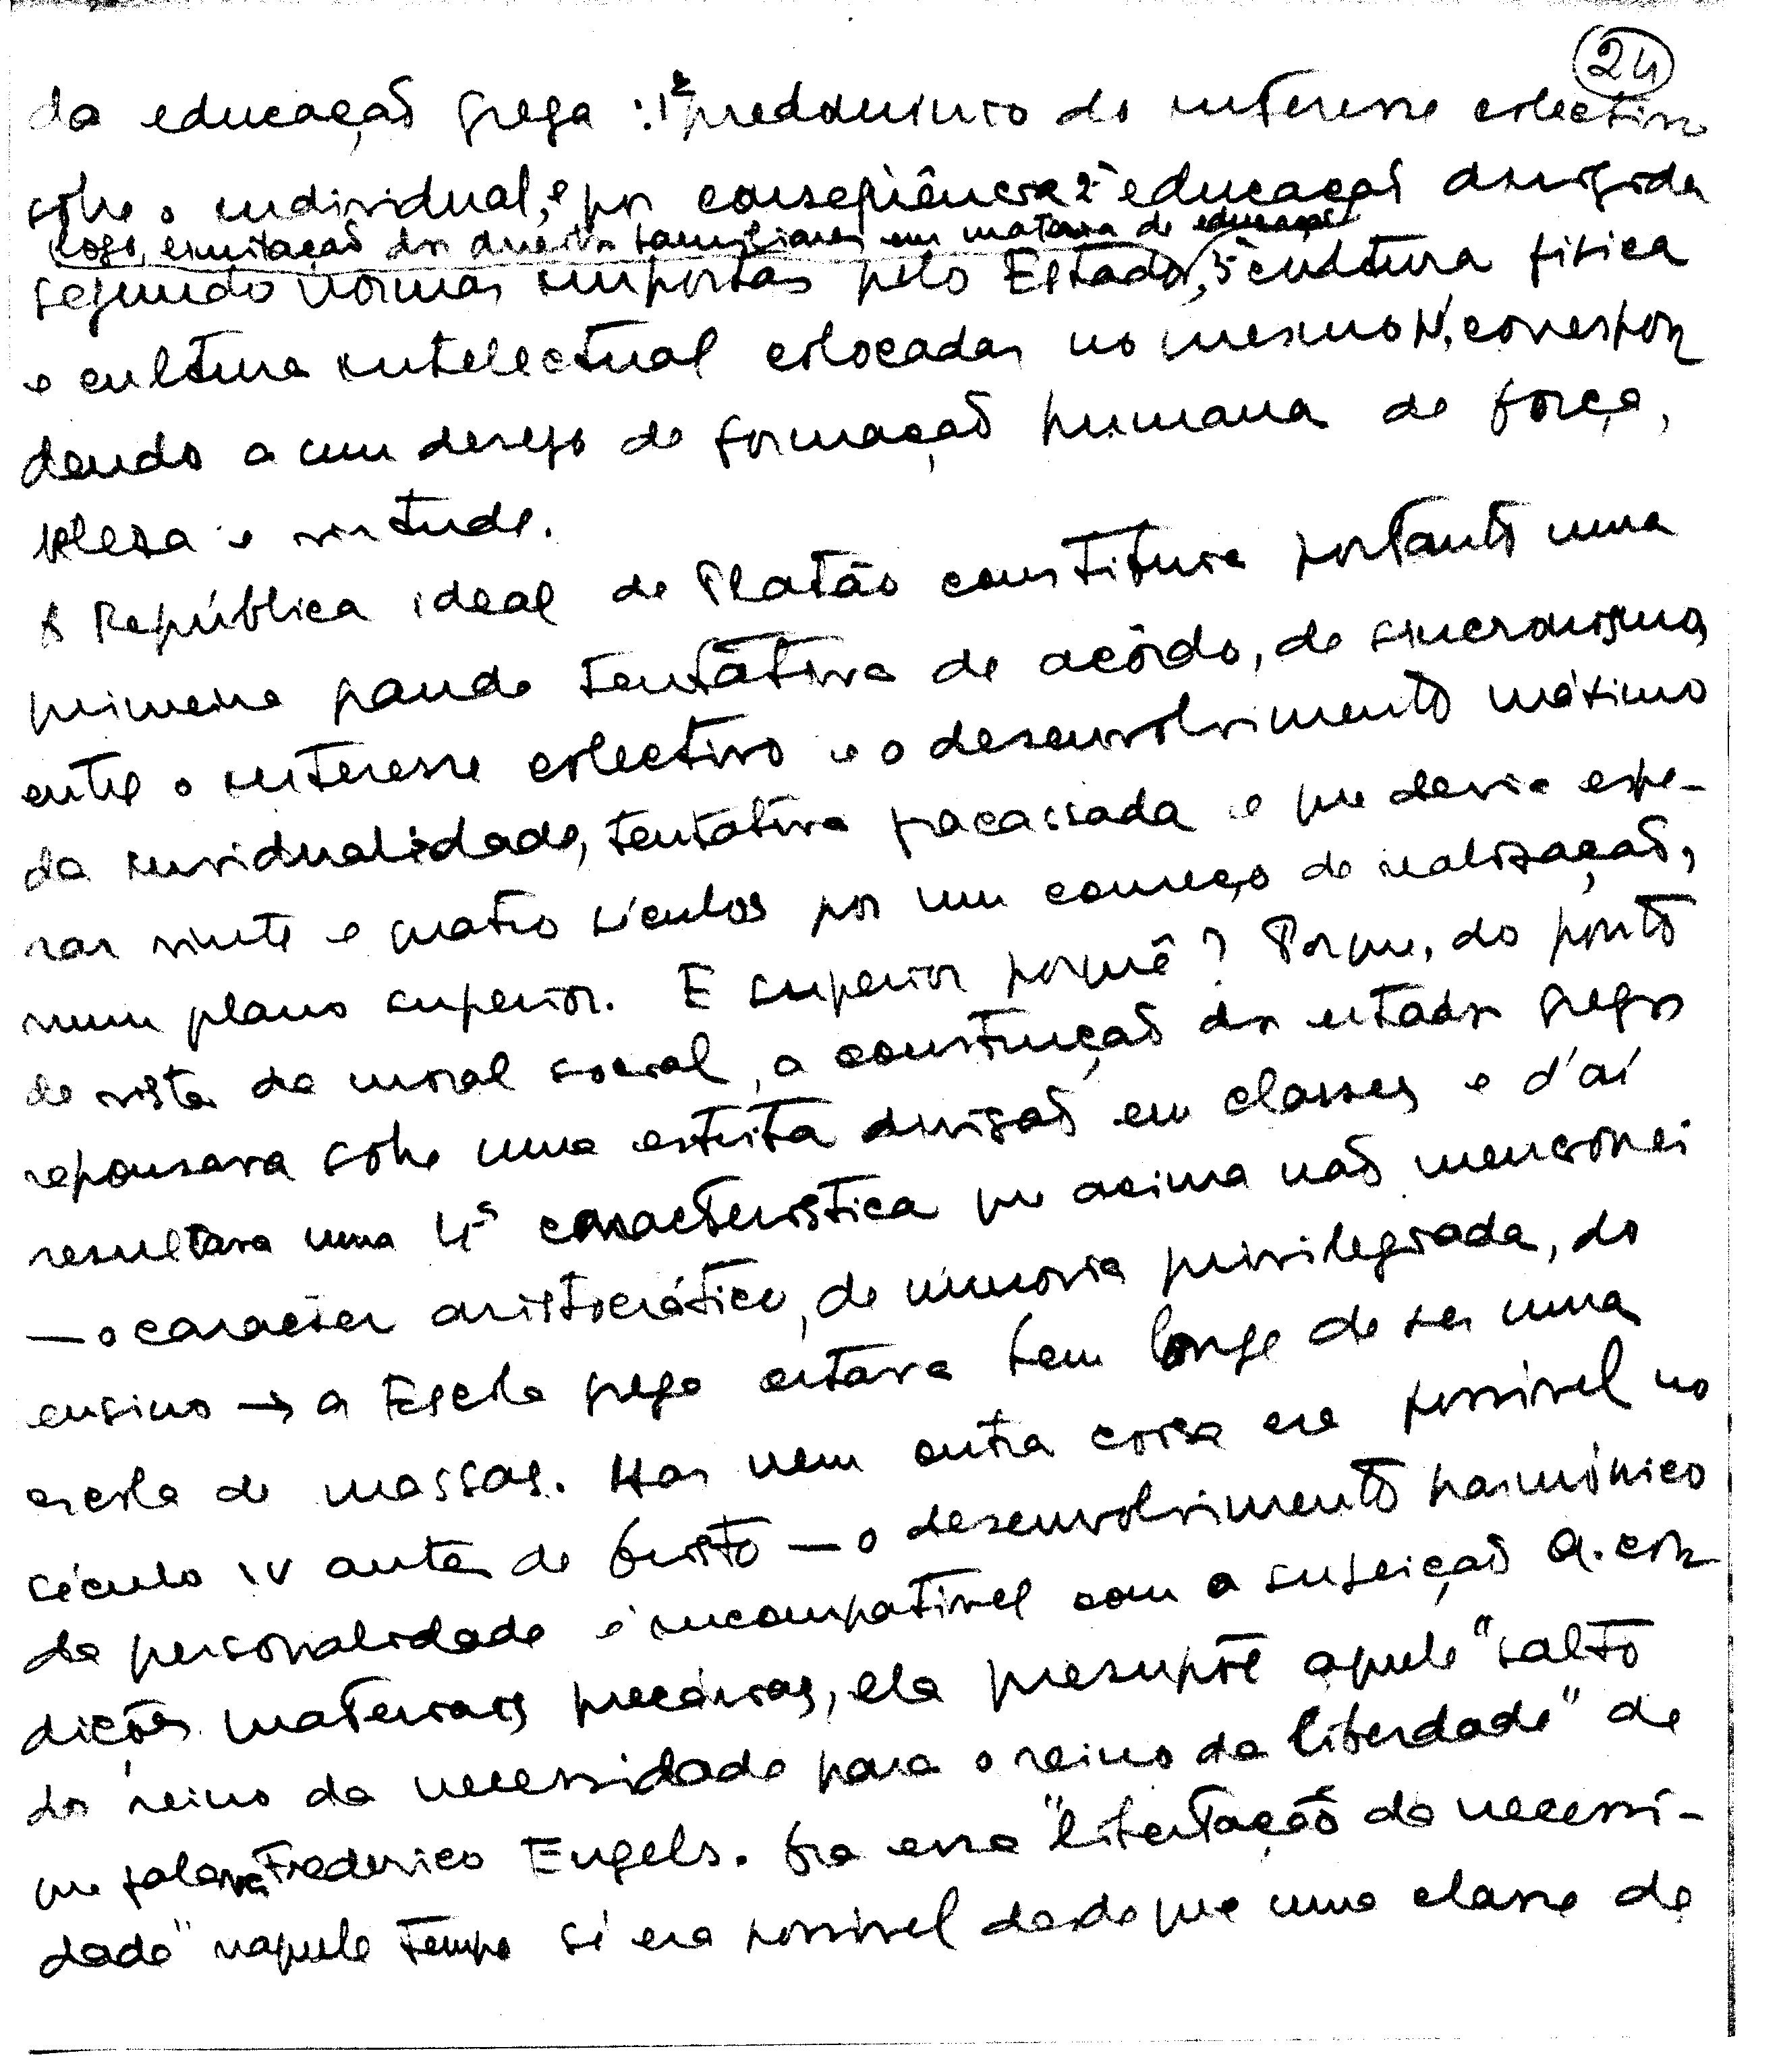 24
da educação grega : 1º predomínio do interesse colectivo
sobre o individual, e por conseqüência 2º educação dirigida
logo, limitação dos direitos familiares em matéria de educação
segundo normas impostas pelo Estado, 3º cultura física
e cultura intelectual colocadas no mesmo pé, correspon
dendo a um desejo de formação humana de força,
beleza e virtude.
A República ideal de Platão constituia portanto uma
primeira grande tentativa de acôrdo, de sincronismo,
entre o interesse colectivo e o desenvolvimento máximo
da individualidade, tentativa fracassada e que devia espe-
rar vinte e quatro séculos por um começo de realização,
num plano superior. E superior porquê? Porque, do ponto
de vista da moral social, a construção dos estados gregos
repousava sobre uma estrita divisão em classes e d'aí
resultava uma 4ª característica que acima não mencionei
— o caracter aristocrático, de minoria privilegiada, do
ensino → a Escola grega estava bem longe de ser uma
escola de massas. Mas nem outra coisa era possível no
século IV antes de Cristo — o desenvolvimento harmónico
da personalidade é incompatível com a sujeição a con
dições materiais precárias, ela presupõe aquele "salto
do reino da necessidade para o reino da liberdade" de
que falava Frederico Engels. Ora essa "libertação da necessi-
dade" naquele tempo só era possível desde que uma classe de